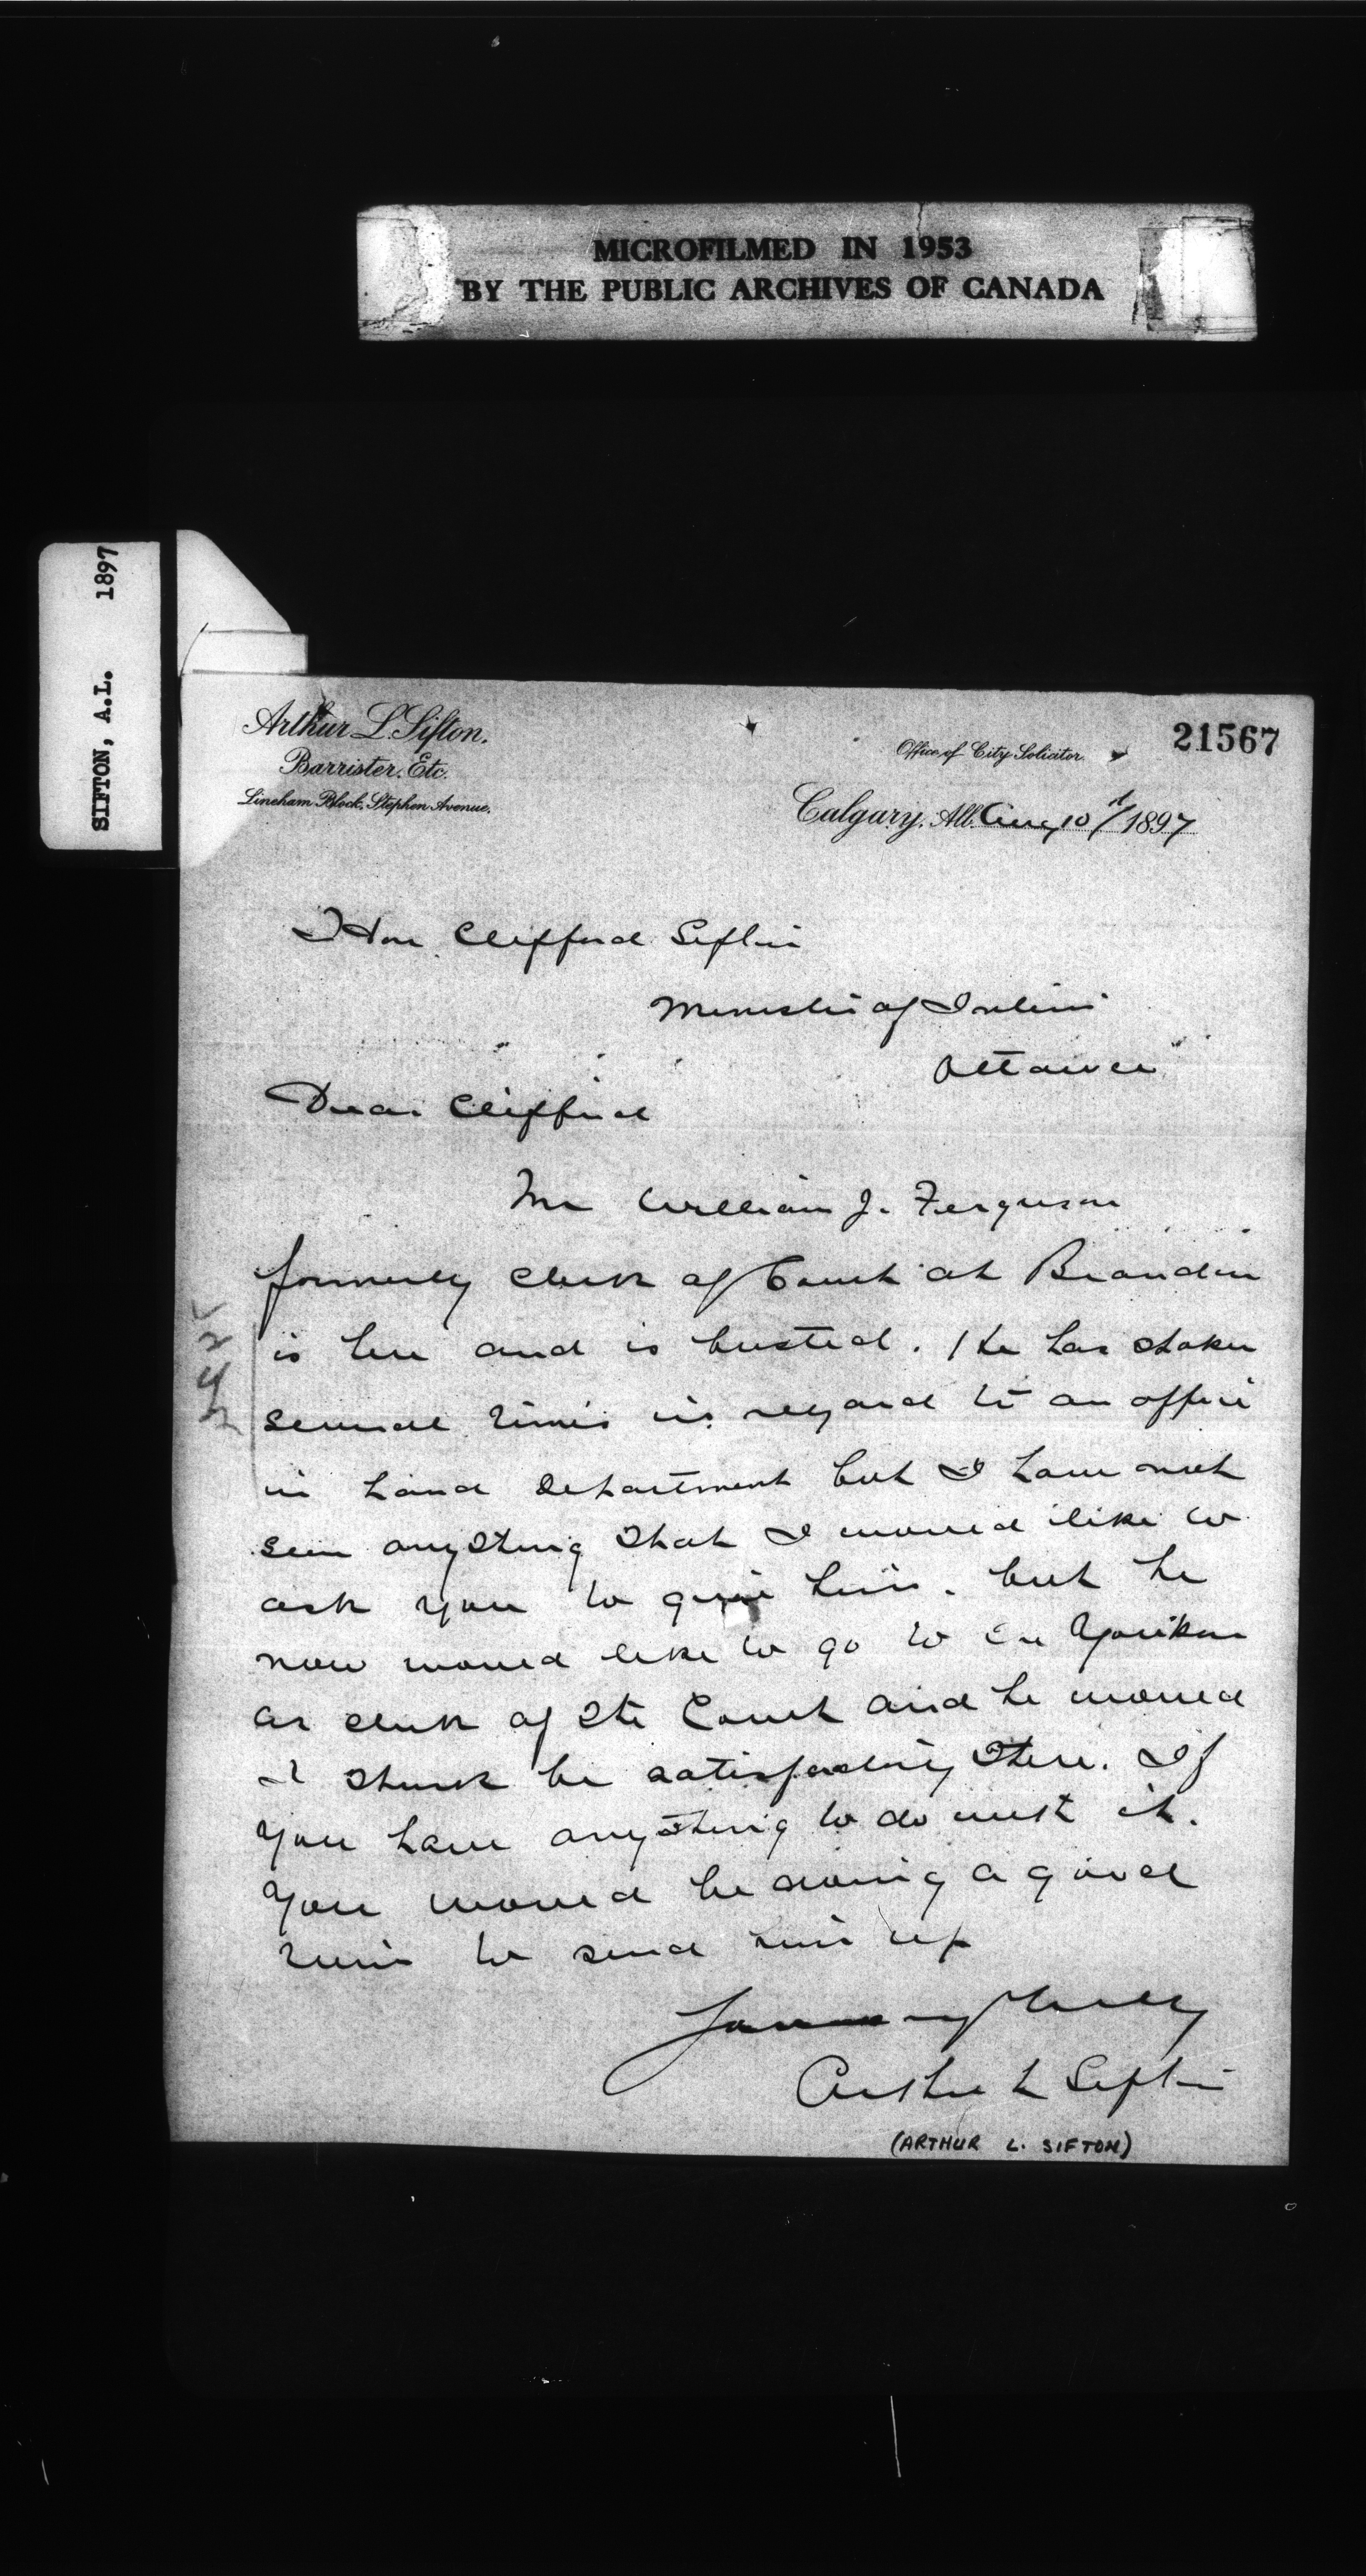 MICROFILMED IN 1953
BY THE PUBLIC ARCHIVES OF CANADA
SIFTON, A.L. 1897
21567
Arthur L. Sifton.
Barrister. Etc.
Lineham Block, Stephen Avenue.
Office of City Solicitor
Calgary, Alb. Aug 10 1897
Hon. Clifford Sifton
Minister of Interior
Ottawa
Dear Clifford
Mr William J. Ferguson
formerly Clerk of Court at Brandon
is here and is busted. He has spoken
several times in regard to an office
in Land Department but I have not
seen anything that I would like to
ask you to give him. but he
now would like to go to the Youkon
as clerk of the Court and he would
I think be satisfactory there. If
you have anything to do with it.
You would be doing a good
turn to send him up
Yours truly
Arthur L Sifton
(ARTHUR L. SIFTON)